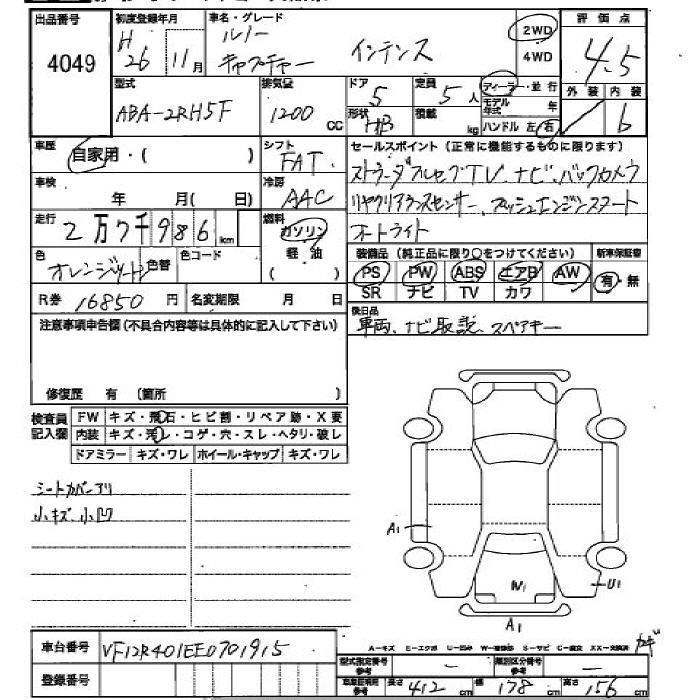 出品番号 4049
初度登録年月 H 26 11月
車名・グレード ルノー キャプチャー インテンス
2WD
4WD
評価点 4.5
外装 内装 6
型式 ABA-2RH5F
排気量 1200 CC
ドア 5
形状 HB
定員 5人
積載 kg
ディーラー・並行
モデル年式 年
ハンドル 左・右
車歴 自家用・( )
シフト FAT
セールスポイント(正常に機能するものに限ります)
車検 年 月(日)
冷房 AAC
ストラーダフルセグTV ナビ、バックカメラ
リヤクリアランスセンサー、プッシュエンジンスタート
オートライト
走行 2万7千986km
燃料 ガソリン
軽油
( )
色 オレンジ
色替
色コード
装備品(純正品に限り○をつけてください)
新車保証書
PS PW ABS エアB AW
SR ナビ TV カワ
有・無
R券 16850円
名変期限 月 日
後日品
車両、ナビ取説、スペアキー
注意事項申告欄(不具合内容等は具体的に記入して下さい)
修復歴 有 (箇所 )
検査員記入欄
FW キズ・飛石・ヒビ割・リペア跡・X要
内装 キズ・汚レ・コゲ・穴・スレ・ヘタリ・破レ
ドアミラー キズ・ワレ ホイール・キャップ キズ・ワレ
シートカバーアリ
小キズ、小凹
A1
W1
U1
A1
車台番号 VF12R401EE0701915
登録番号
A-キズ E-エクボ U-凹み W-補修跡 S-サビ C-腐食 XX-交換済
カギ
型式指定番号 参考 -
類別区分番号 参考 -
車庫証明用 参考 長さ 412 cm 幅 178 cm 高さ 156 cm